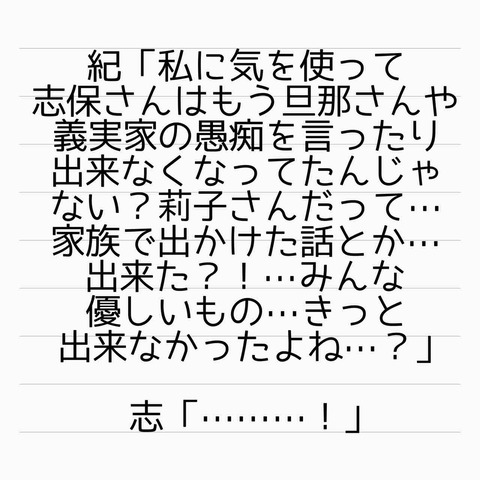 紀「私に気を使って
志保さんはもう旦那さんや
義実家の愚痴を言ったり
出来なくなってたんじゃ
ない？莉子さんだって…
家族で出かけた話とか…
出来た？！…みんな
優しいもの…きっと
出来なかったよね…？」
志「………！」